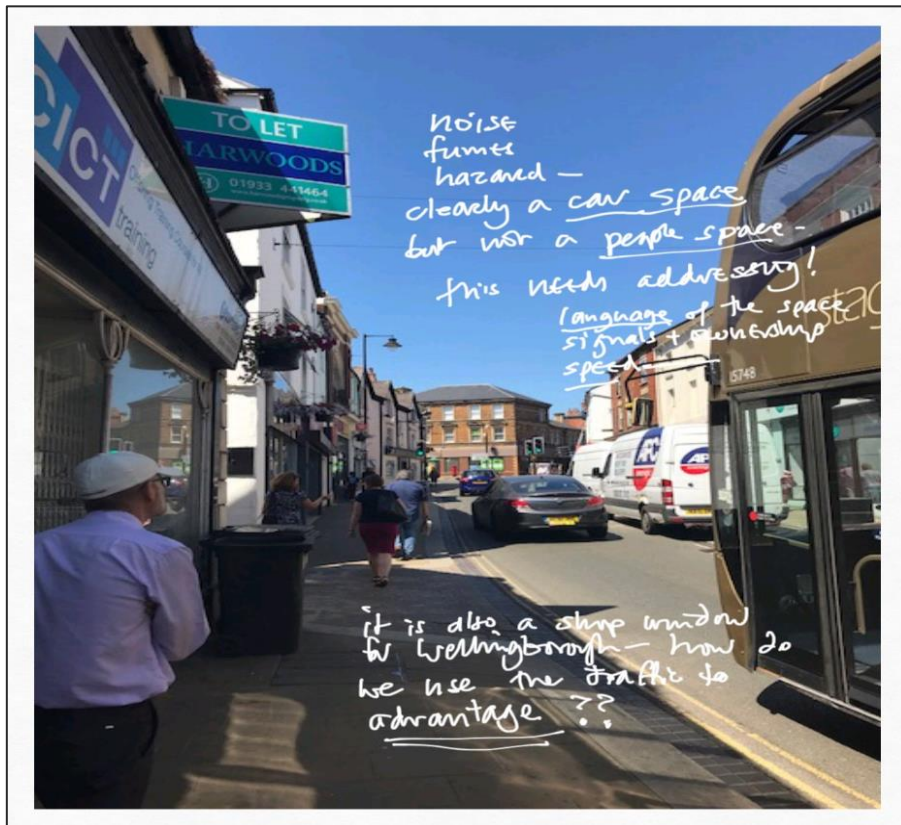 CICT
training
TO LET
HARWOODS
01933 441464
noise
fumes
hazard —
clearly a car space
but not a people space -
this needs addressing!
language of the space
signals + ownership
speed
stag
15748
APC
APC
it is also a shop window
for Wellingborough — how do
we use the traffic to
advantage ??